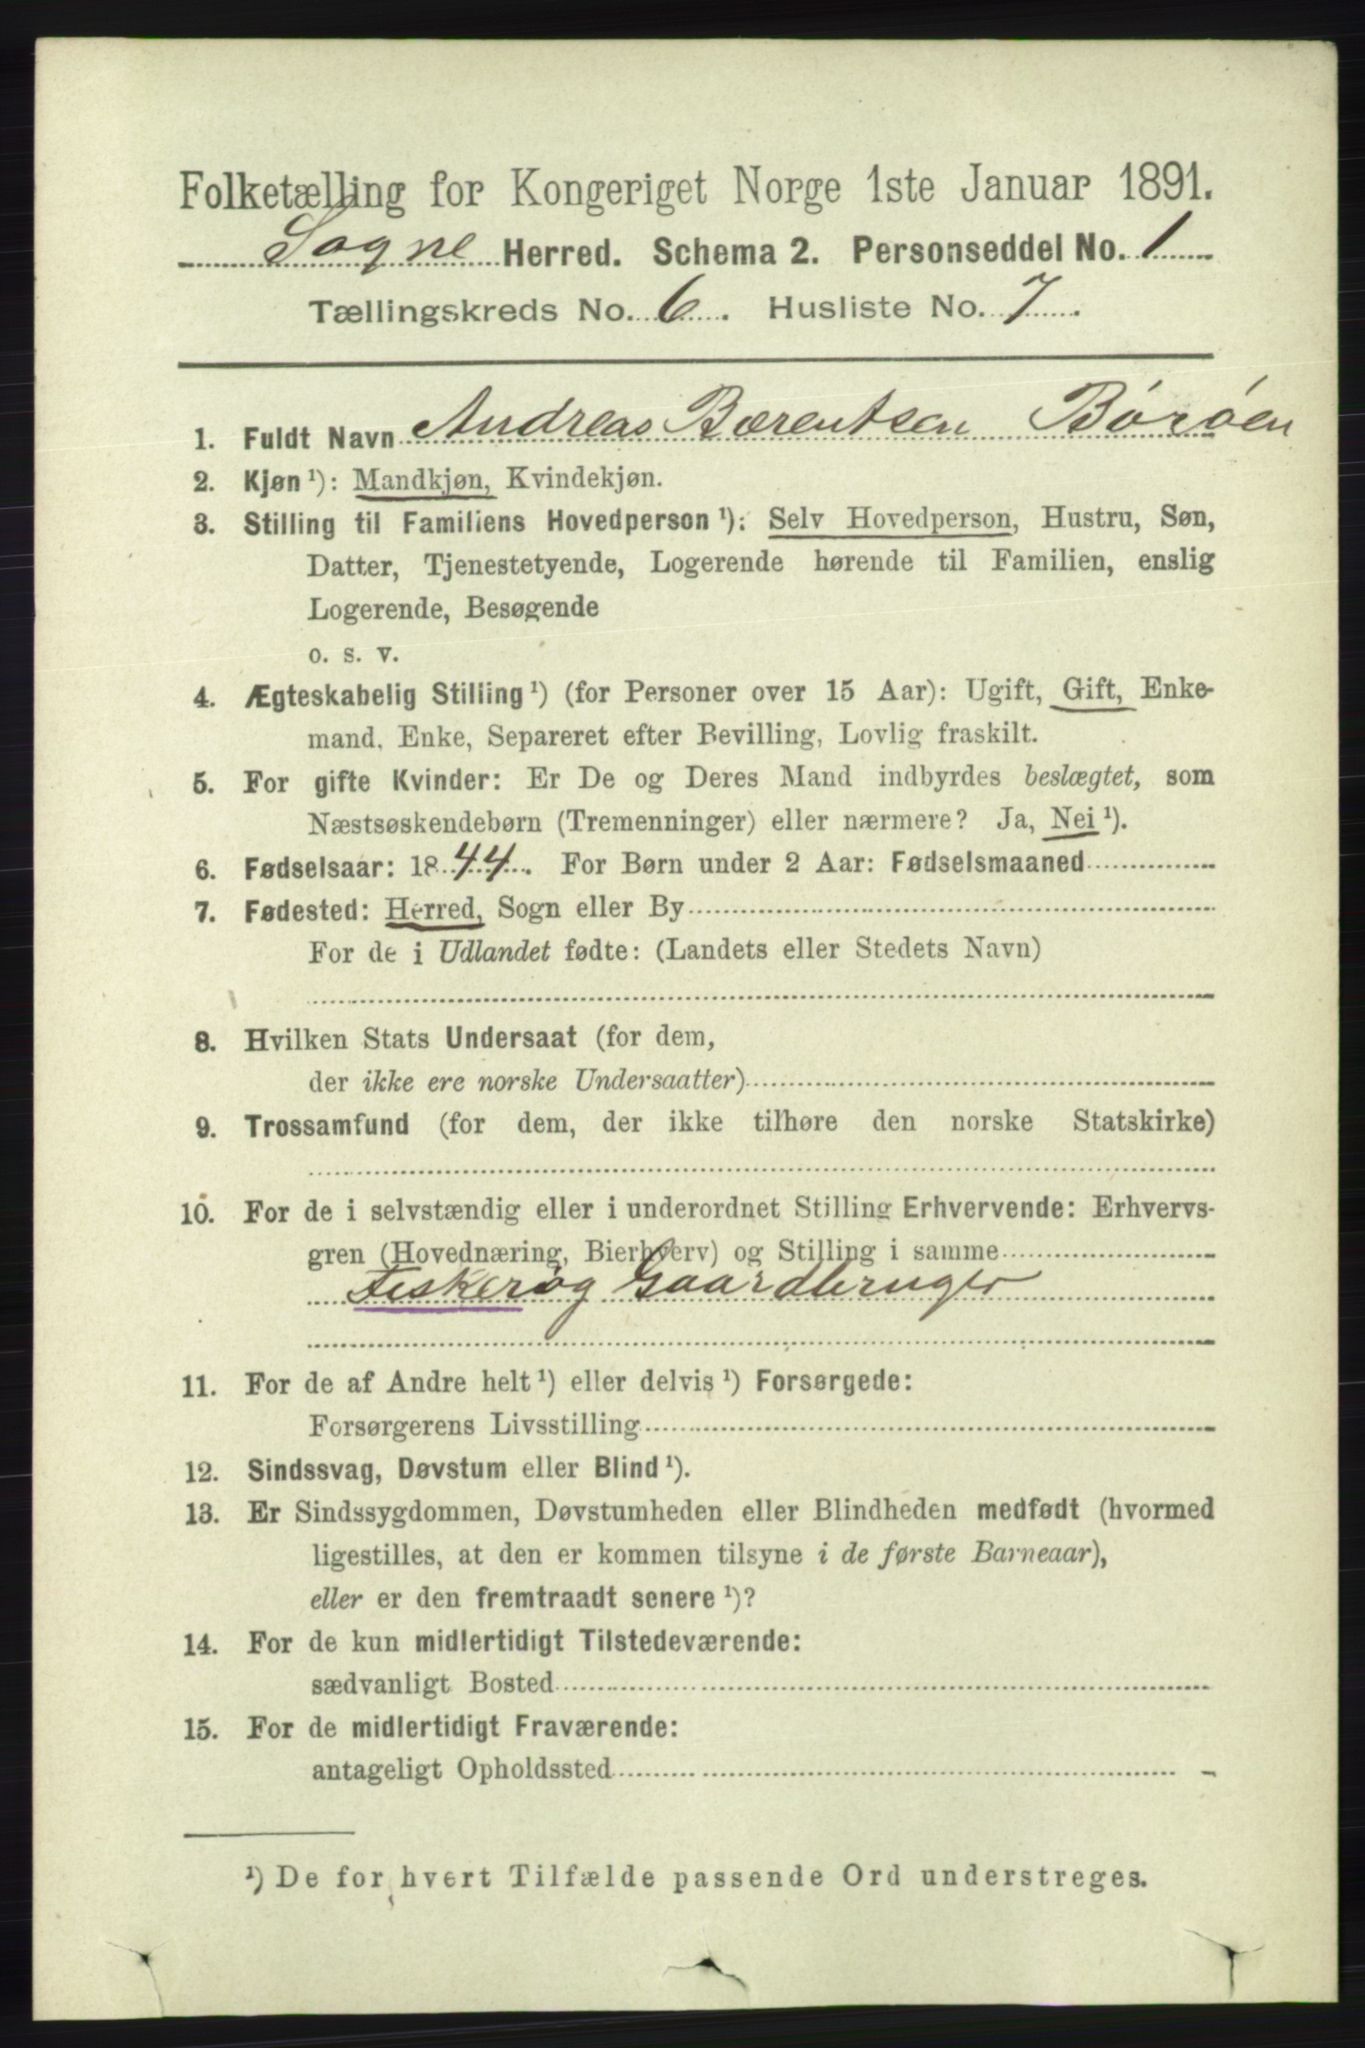 Folketælling for Kongeriget Norge 1ste Januar 1891.
Søgne Herred. Schema 2. Personseddel No. 1
Tællingskreds No. 6. Husliste No. 7.
1. Fuldt Navn Andreas Bærentsen Børøen
2. Kjøn ¹): Mandkjøn, Kvindekjøn.
3. Stilling til Familiens Hovedperson ¹): Selv Hovedperson, Hustru, Søn,
Datter, Tjenestetyende, Logerende hørende til Familien, enslig
Logerende, Besøgende
o. s. v.
4. Ægteskabelig Stilling ¹) (for Personer over 15 Aar): Ugift, Gift, Enke-
mand, Enke, Separeret efter Bevilling, Lovlig fraskilt.
5. For gifte Kvinder: Er De og Deres Mand indbyrdes beslægtet, som
Næstsøskendebørn (Tremenninger) eller nærmere? Ja, Nei ¹).
6. Fødselsaar: 1844. For Børn under 2 Aar: Fødselsmaaned
7. Fødested: Herred, Sogn eller By
For de i Udlandet fødte: (Landets eller Stedets Navn)
8. Hvilken Stats Undersaat (for dem,
der ikke ere norske Undersaatter)
9. Trossamfund (for dem, der ikke tilhøre den norske Statskirke)
10. For de i selvstændig eller i underordnet Stilling Erhvervende: Erhvervs-
gren (Hovednæring, Bierhverv) og Stilling i samme
Fisker og Gaardbruger
11. For de af Andre helt ¹) eller delvis ¹) Forsørgede:
Forsørgerens Livsstilling
12. Sindssvag, Døvstum eller Blind ¹).
13. Er Sindssygdommen, Døvstumheden eller Blindheden medfødt (hvormed
ligestilles, at den er kommen tilsyne i de første Barneaar),
eller er den fremtraadt senere ¹)?
14. For de kun midlertidigt Tilstedeværende:
sædvanligt Bosted
15. For de midlertidigt Fraværende:
antageligt Opholdssted
¹) De for hvert Tilfælde passende Ord understreges.